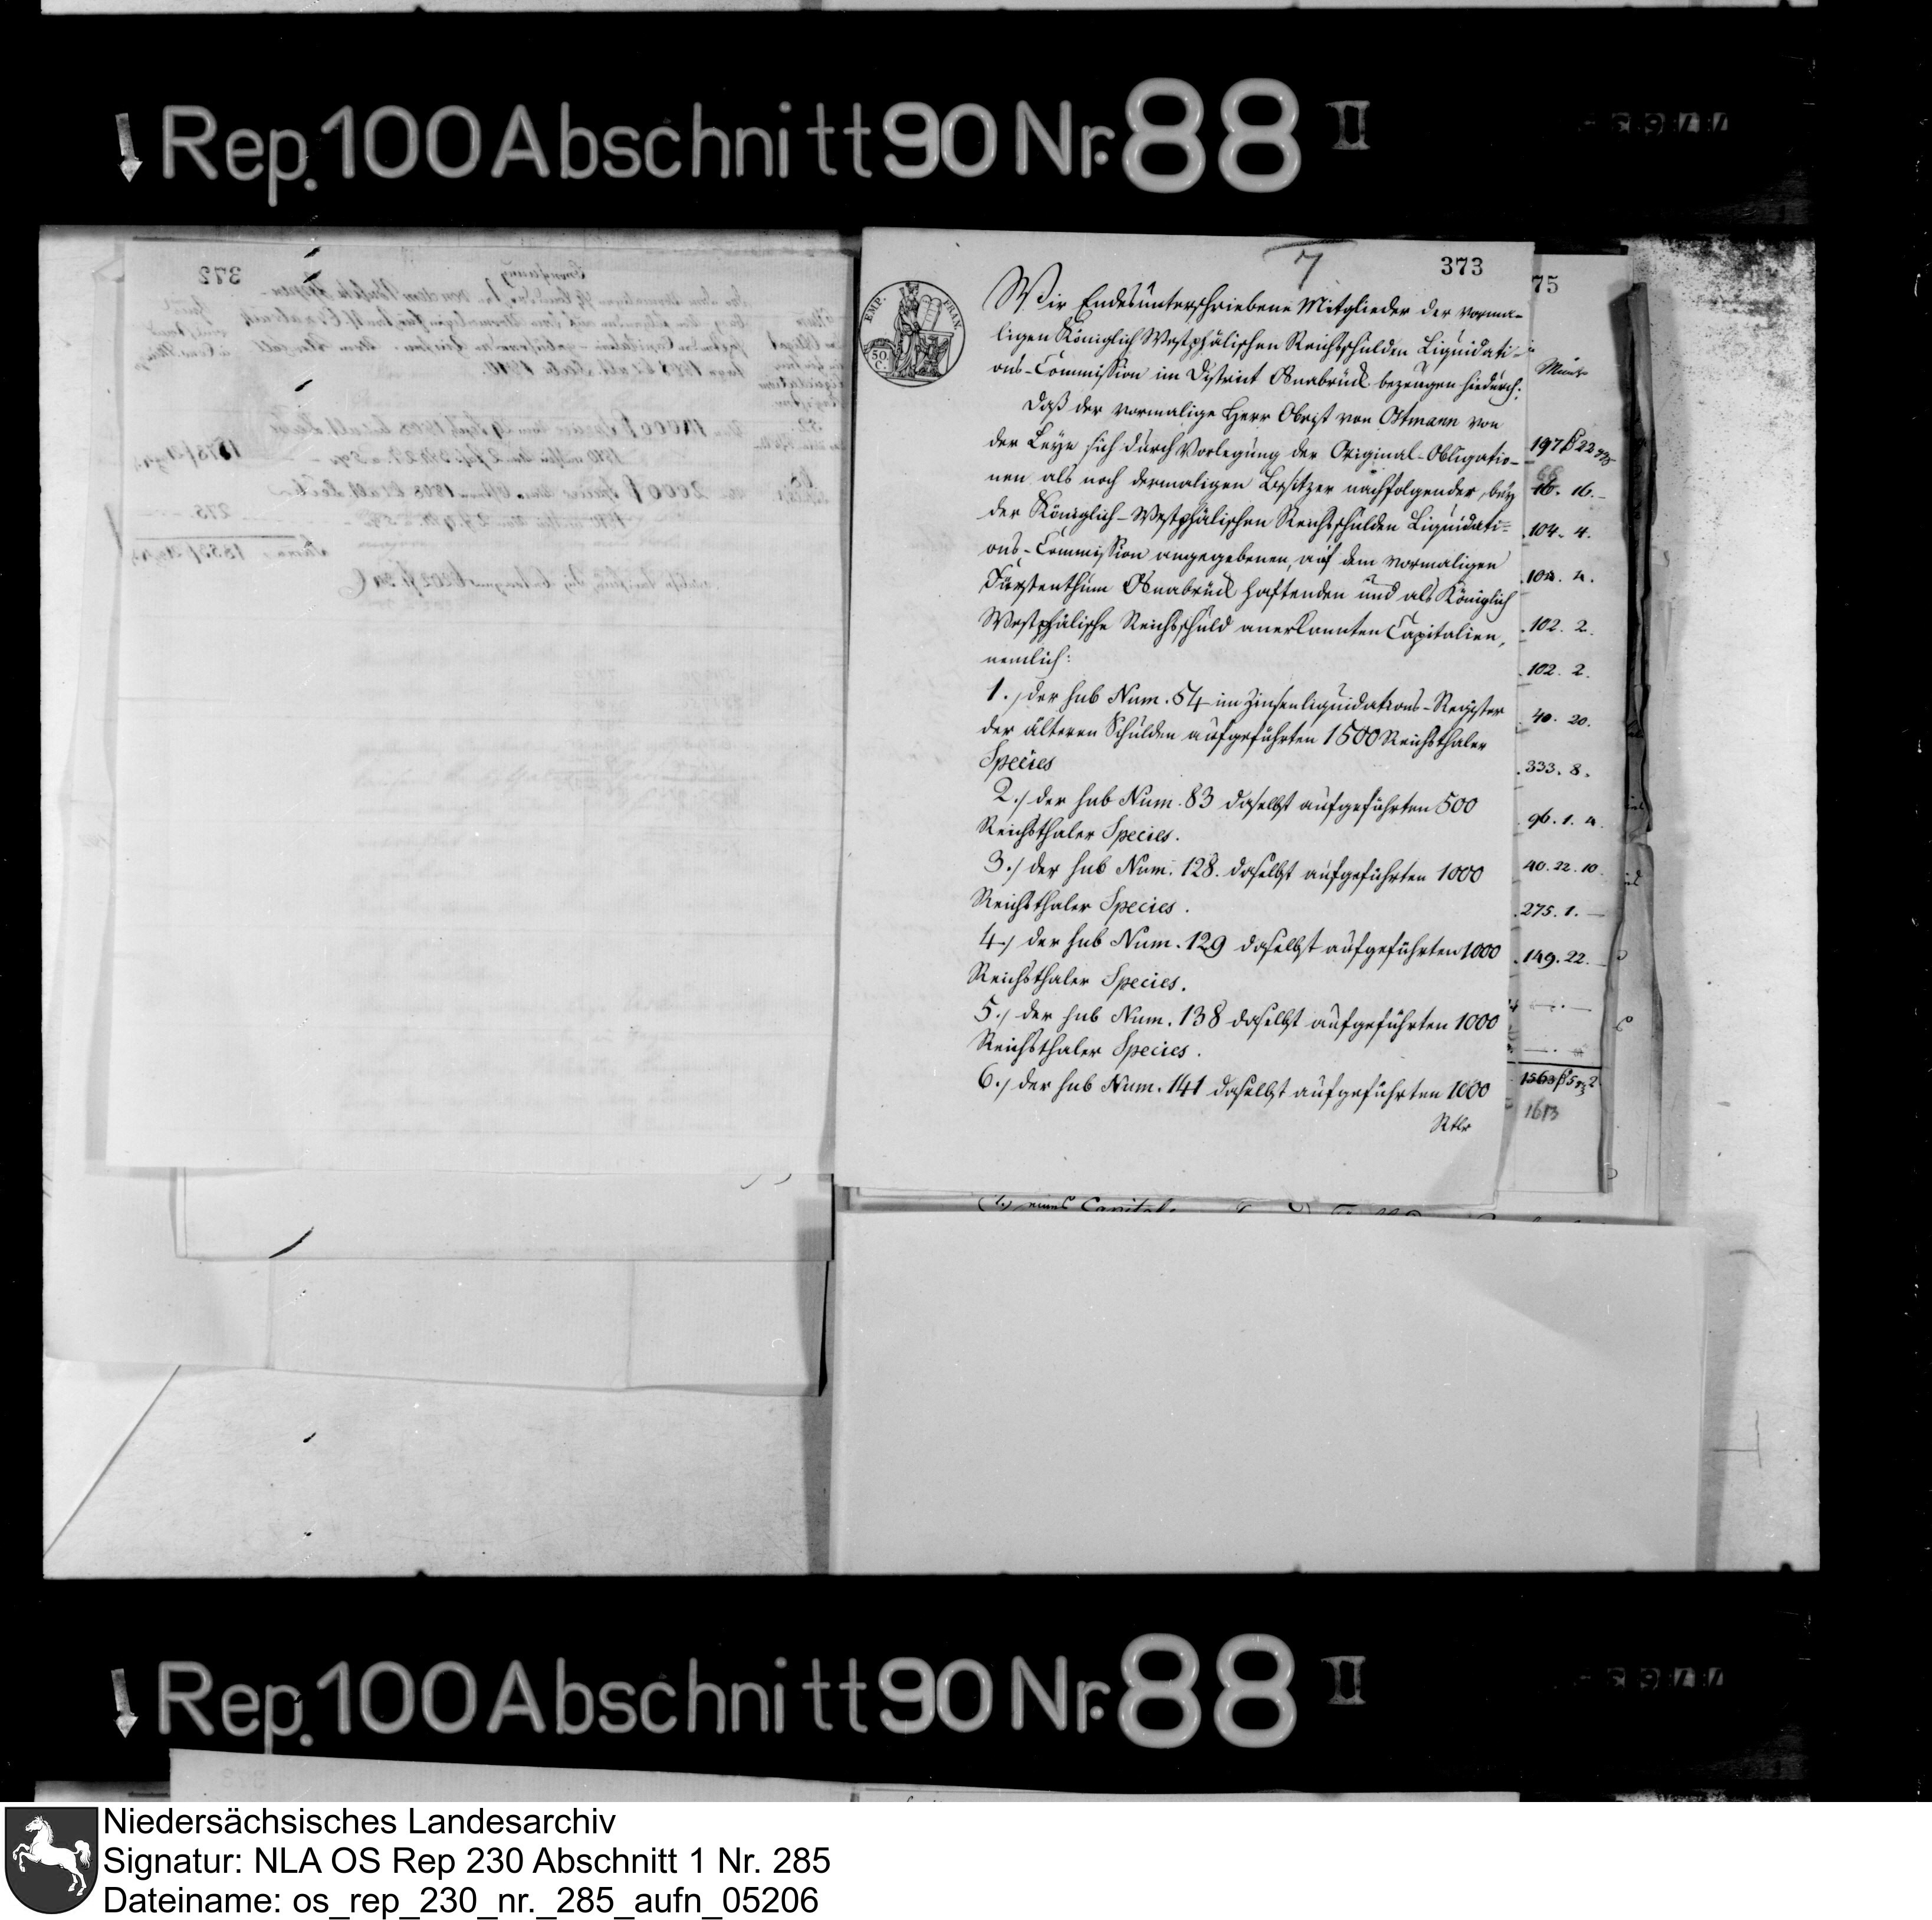 Rep. 100 Abschnitt 90 Nr. 88 II
372
7
373
75
EMP. FRAN.
50. C.
Wir Endesunterschriebene Mitglieder der vorma-
ligen Königlich Westphälischen Reichsschulden Liquidati-
ons-Commission im District Osnabrück bezeugen hiedurch:
daß der vormalige Herr Obrist von Ostmann von
der Leye sich durch Vorlegung der Original-Obligatio-
nen als noch dermaligen Besitzer nachfolgender, bey
der Königlich-Westphälischen Reichsschulden Liquidati-
ons-Commission angegebenen, auf dem vormaligen
Fürstenthum Osnabrück haftenden und als Königlich
Westphälische Reichsschuld anerkannten Capitalien,
nemlich:
1., der sub Num. 54 im Zinsenliquidations-Register
der älteren Schulden aufgeführten 1500 Reichsthaler
Species
2./ der sub Num. 83 daselbst aufgeführten 500
Reichsthaler Species.
3./ der sub Num. 128. daselbst aufgeführten 1000
Reichsthaler Species.
4./ der sub Num. 129 daselbst aufgeführten 1000
Reichsthaler Species.
5./ der sub Num. 138 daselbst aufgeführten 1000
Reichsthaler Species.
6./ der sub Num. 141 daselbst aufgeführten 1000
Rtlr
197 22
68
16. 16.
104. 4.
104. 4.
102. 2.
102. 2.
40. 20.
333. 8.
96. 1. 4.
40. 22. 10.
275. 1. —
149. 22. —
1563 5 2
1613
Capital
Rep. 100 Abschnitt 90 Nr. 88 II
Niedersächsisches Landesarchiv
Signatur: NLA OS Rep 230 Abschnitt 1 Nr. 285
Dateiname: os_rep_230_nr._285_aufn_05206